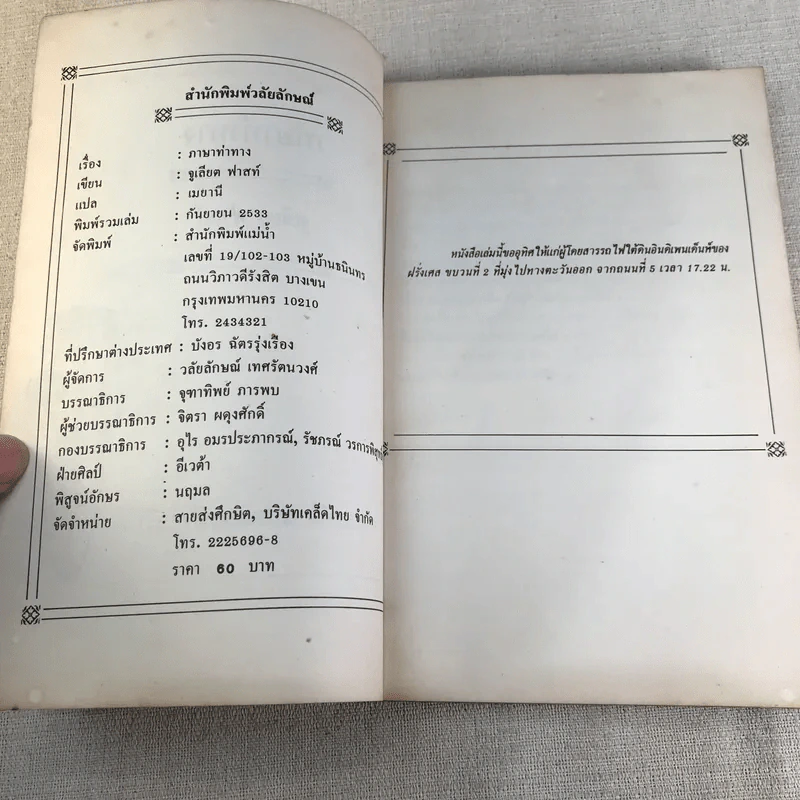 สำนักพิมพ์วลัยลักษณ์
เรื่อง : ภาษาท่าทาง
เขียน : จูเลียต ฟาสท์
แปล : เมยานี
พิมพ์รวมเล่ม : กันยายน 2533
จัดพิมพ์ : สำนักพิมพ์แม่น้ำ
เลขที่ 19/102-103 หมู่บ้านธนินทร
ถนนวิภาวดีรังสิต บางเขน
กรุงเทพมหานคร 10210
โทร. 2434321
ที่ปรึกษาต่างประเทศ : บังอร ฉัตรรุ่งเรื่อง
ผู้จัดการ : วลัยลักษณ์ เทศรัตนวงศ์
บรรณาธิการ : จุฑาทิพย์ ภารพบ
ผู้ช่วยบรรณาธิการ : จิตรา ผดุงศักดิ์
กองบรรณาธิการ : อุไร อมรประภากรณ์, รัชภรณ์
ฝ่ายศิลป์ : อีเวต้า
พิสูจน์อักษร : นฤมล
จัดจำหน่าย : สายส่งศึกษิต, บริษัทเคล็ดไทย จำกัด
โทร. 2225696-8
ราคา 60 บาท
หนังสือเล่มนี้ขออุทิศให้แก่ผู้โดยสารรถไฟใต้ดินอินดิเพนเด็นท์ของ
ฝรั่งเศส ขบวนที่ 2 ที่มุ่งไปทางตะวันออก จากถนนที่ 5 เวลา 17.22 น.